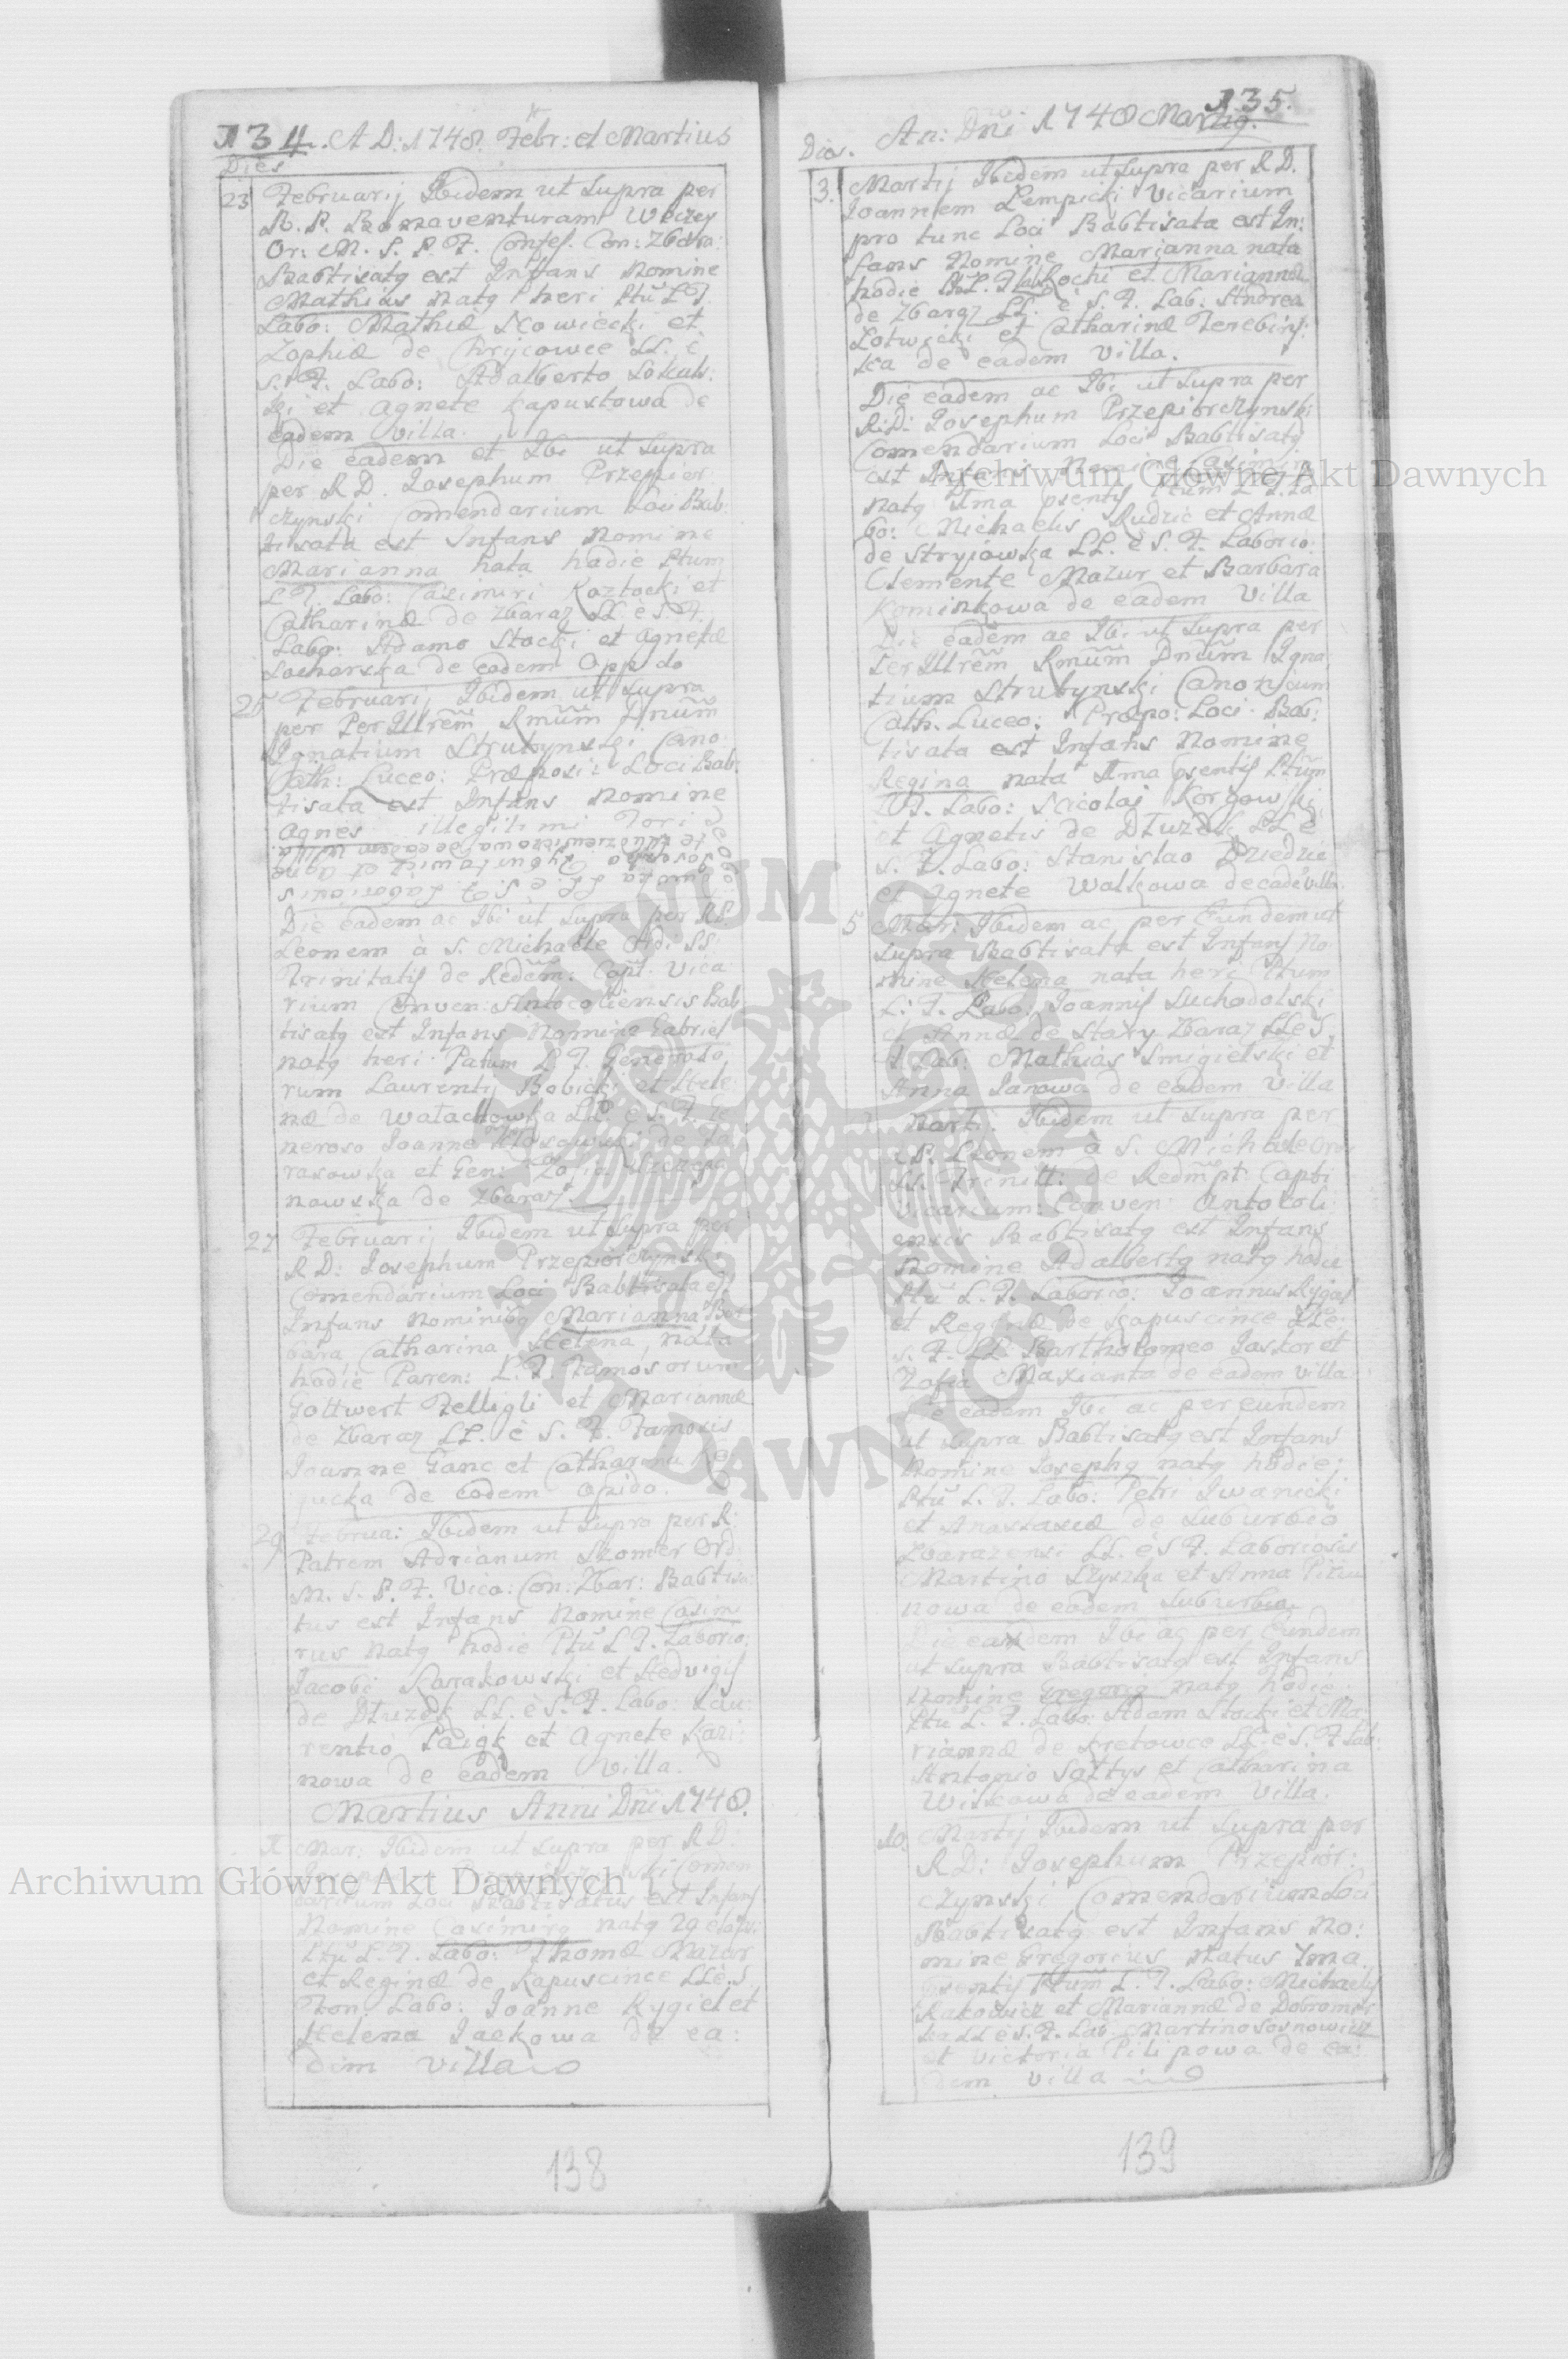 134. A D: 1748. Febr: et Martius
Dies
23 Februarij Ibidem ut supra per
R. P. Bonaventuram
Or: M. S. P. F. Confes. Con: Zbara:
Babtisatq est Infans Nomine
Mathias Natq heri Ptũ L T.
Labo: Mathiæ et
Zophiæ de LL. è
S. F. Labo: Adalberto
ski et Agnete Kapustowa de
eadem Villa.
Die eadem et Ibi ut supra
per R D. Josephum Przepior
czynski Comendarium Loci Bab:
tisata est Infans Nomine
Marianna nata hodie Ptum
L T. Labo: Casimiri Koztocki et
Catharinæ de Zbaraz LL è S. F.
Labo: Adamo Stocki et Agnete
de eadem Oppido
25 Februarij Ibidem ut supra
per PerIllrẽm Rmũm Dnũm
Ignatium Strubynski Cano:
Cath: Luceo: Præposit Loci Bab:
tisata est Infans Nomine
Agnes illegitimi Tori
Die eadem ac Ibi ut supra per RP.
Leonem à S. Michaele Ordi SS.
Trinitatis de Redẽm: Capt: Vica
rium Conven: Antocoliensis Bab
tisatq est Infans Nomine Gabriel
natq heri Patum L T. Generoso
rum Laurentij Bobicki et Hele
næ de Watachowka LL. è S. F. Ge
neroso Joanne de
rasowka et Gen: Zofia Szczepa
nowska de Zbaraz
27 Februarij Ibidem ut supra per
R D: Josephum Przepiorczynski
Comendarium Loci Babtisata est
Infans Nominibq Marianna Bar
bara Catharina Helena, nata
hodie Paren: L. T. Famosorum
Gottwert Felligli et Mariannæ
de Zbaraz LL. è S. F. Famosis
Joanne Ganc et Catharina
jucka de eodem Opido.
29 Februa: Ibidem ut supra per R:
Patrem Adrianum Szomer Ord
M. S. P. F. Vica: Con: Zbar: Babtisa
tus est Infans Nomine Casimi
rus Natq hodie Ptũ L T. Laborio:
Jacobi Karakowski et Hedvigis
de Dtuzek LL. è S. F. Labo: Lau:
rentio Paigk et Agnete Kazi
nowa de eadem Villa.
Martius Anni Dñi 1748.
Mar: Ibidem ut supra per R D.
Josephum Przepiorczynski Comen
darium Loci Babtisatus est Infans
Nomine Casimirq natq 29 elaps:
Ptũ L. T. Labo: Thomæ Mazur
et Reginæ de Kapuscince LL è S.
Fon: Labo: Joanne Rygiel et
Helena Jackowa de ea:
dem villa
138
135.
Die. An: Dni 1748 Martiq.
3. Martij Ibidem ut supra per R D.
Joannem Lempicki Vicarium
pro tunc Loci Babtisata est In:
fans Nomine Marianna nata
hodie L. T. Rochi et Mariannæ
de Zbaraz LL. è S. F. Lab: Andrea
Lotwicki et Catharina Terebins:
ka de eadem Villa.
Die eadem ac Ibi ut supra per
R: D: Josephum Przepiorczynski
Comendarium Loci Babtisatq
est Infans Nomine Casimirq
natq Ima psentis Ptum L T. La
bo: Michaelis Rudzic et Annæ
de Stryjowka LL. è S. F. Laborio:
Clemente Mazur et Barbara
Kominkowa de eadem Villa
Die eadem ac Ibi ut supra per
PerIllrẽm Rmũm Dnũm Igna
tium Strubynski Canonicum
Cath. Luceo: Præpo: Loci Bab:
tisata est Infans Nomine
Regina nata Ima psentis Ptũm
L T. Labo: Nicolai
et Agnetis de Dtuzek LL è
S. F. Labo: Stanislao Dziedzic
et Agnete Walkowa de eadẽ villa.
5 Mar: Ibidem ac per Eundem ut
supra Babtisata est Infans No
mine Helena nata heri Ptum
L: T. Labo: Joannis Suchodolski
et Annæ de Stary Zbaraz LL è S.
F. Lab: Mathias Smigielski et
Anna Janowa de eadem Villa
Marti: Ibidem ut supra per
R P. Leonem à S. Michaele Or:
SS. Trinitt: de Redmpt: Capti
Vicarium: Conven: Antocoli
ensis Babtisatq est Infans
Nomine Adalbertq natq hodie
Ptũ L. T. Laborio: Joannis Rygiel
et Reginæ de Kapuscince LL è
S. F. LL Bartholomeo Jaskor et
Zofia Maxianta de eadem villa
Die eadem Ibi ac per eundem
ut supra Babtisatq est Infans
Nomine Josephq natq hodie:
Ptũ L. T. Labo: Petri Iwanicki
et Anastasiæ de Suburbio
Zbarazensi LL. è S F. Laboriosis
Martino Szyszka et Anna
nowa de eadem Suburbio
Die eadem Ibi ac per Eundem
ut supra Babtisatq est Infans
Nomine Gregoriq natq hodie:
Ptũ L. T. Labo: Adam Stocki et Ma
riannæ de Kretowce LL: è S. F Lab:
Antonio Sottys et Catharina
Witkowa de eadem Villa.
10. Martij Ibidem ut supra per
R D: Josephum Przepior:
czynski Comendarium Loci
Babtisatq est Infans No:
mine Gregorius Natus Ima
psentis Ptum L. T. Labo: Michaelis
Rakowicz et Mariannæ de Dobromir
ka LL è S. F. Lab: Martino Sosnowicz
et Victoria Pilipowa de ea:
dem Villa
139
Archiwum Główne Akt Dawnych
Archiwum Główne Akt Dawnych
ARCHIWUM GŁÓWNE AKT DAWNYCH